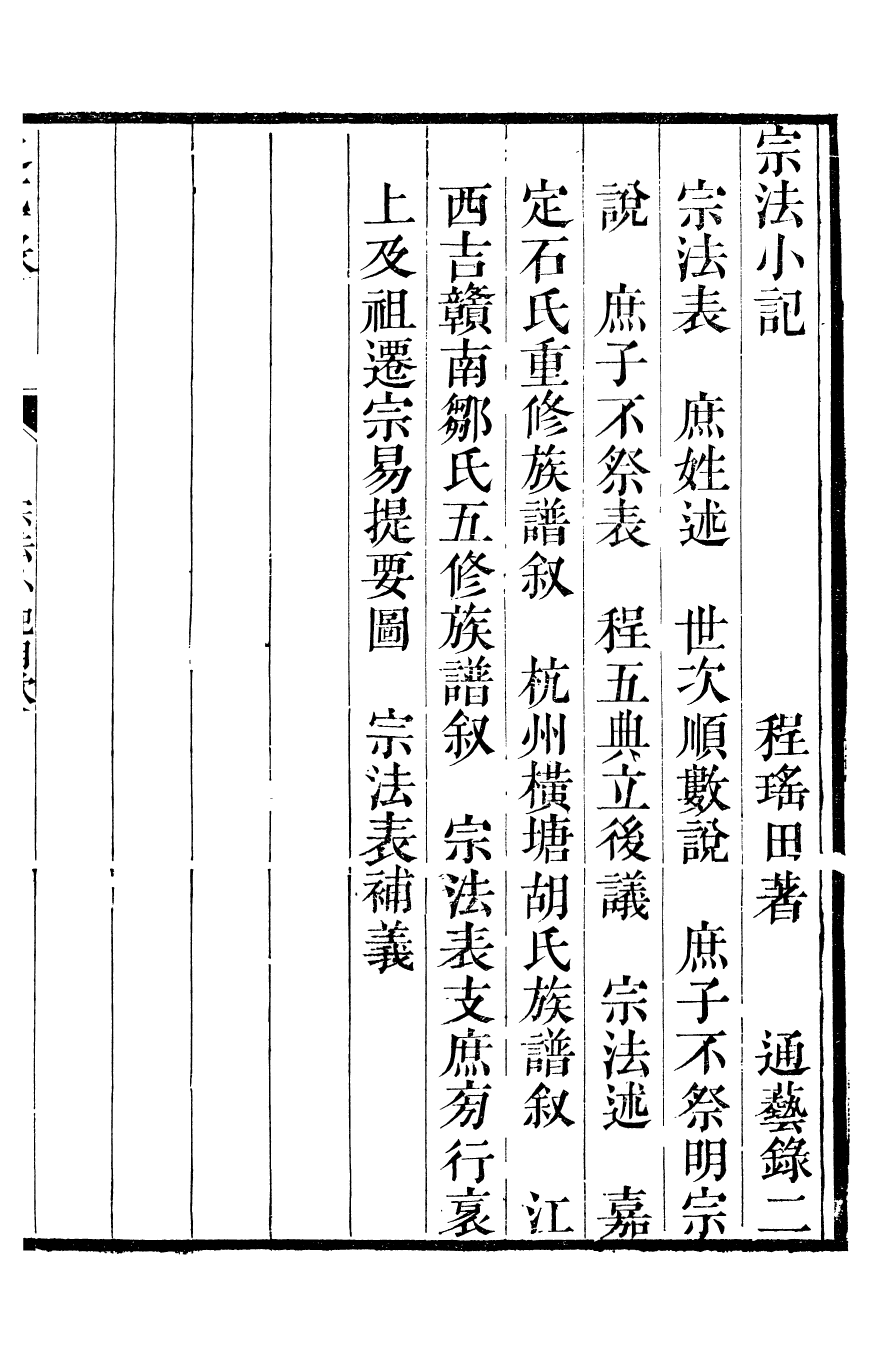 宗法小記　程瑤田著　通藝錄二
宗法表　庶姓述　世次順數說　庶子不祭明宗
說　庶子不祭表　程五典立後議　宗法述　嘉
定石氏重修族譜叙　杭州橫塘胡氏族譜叙　江
西吉贛南鄒氏五修族譜叙　宗法表支庶旁行哀
上及祖遷宗易提要圖　宗法表補義